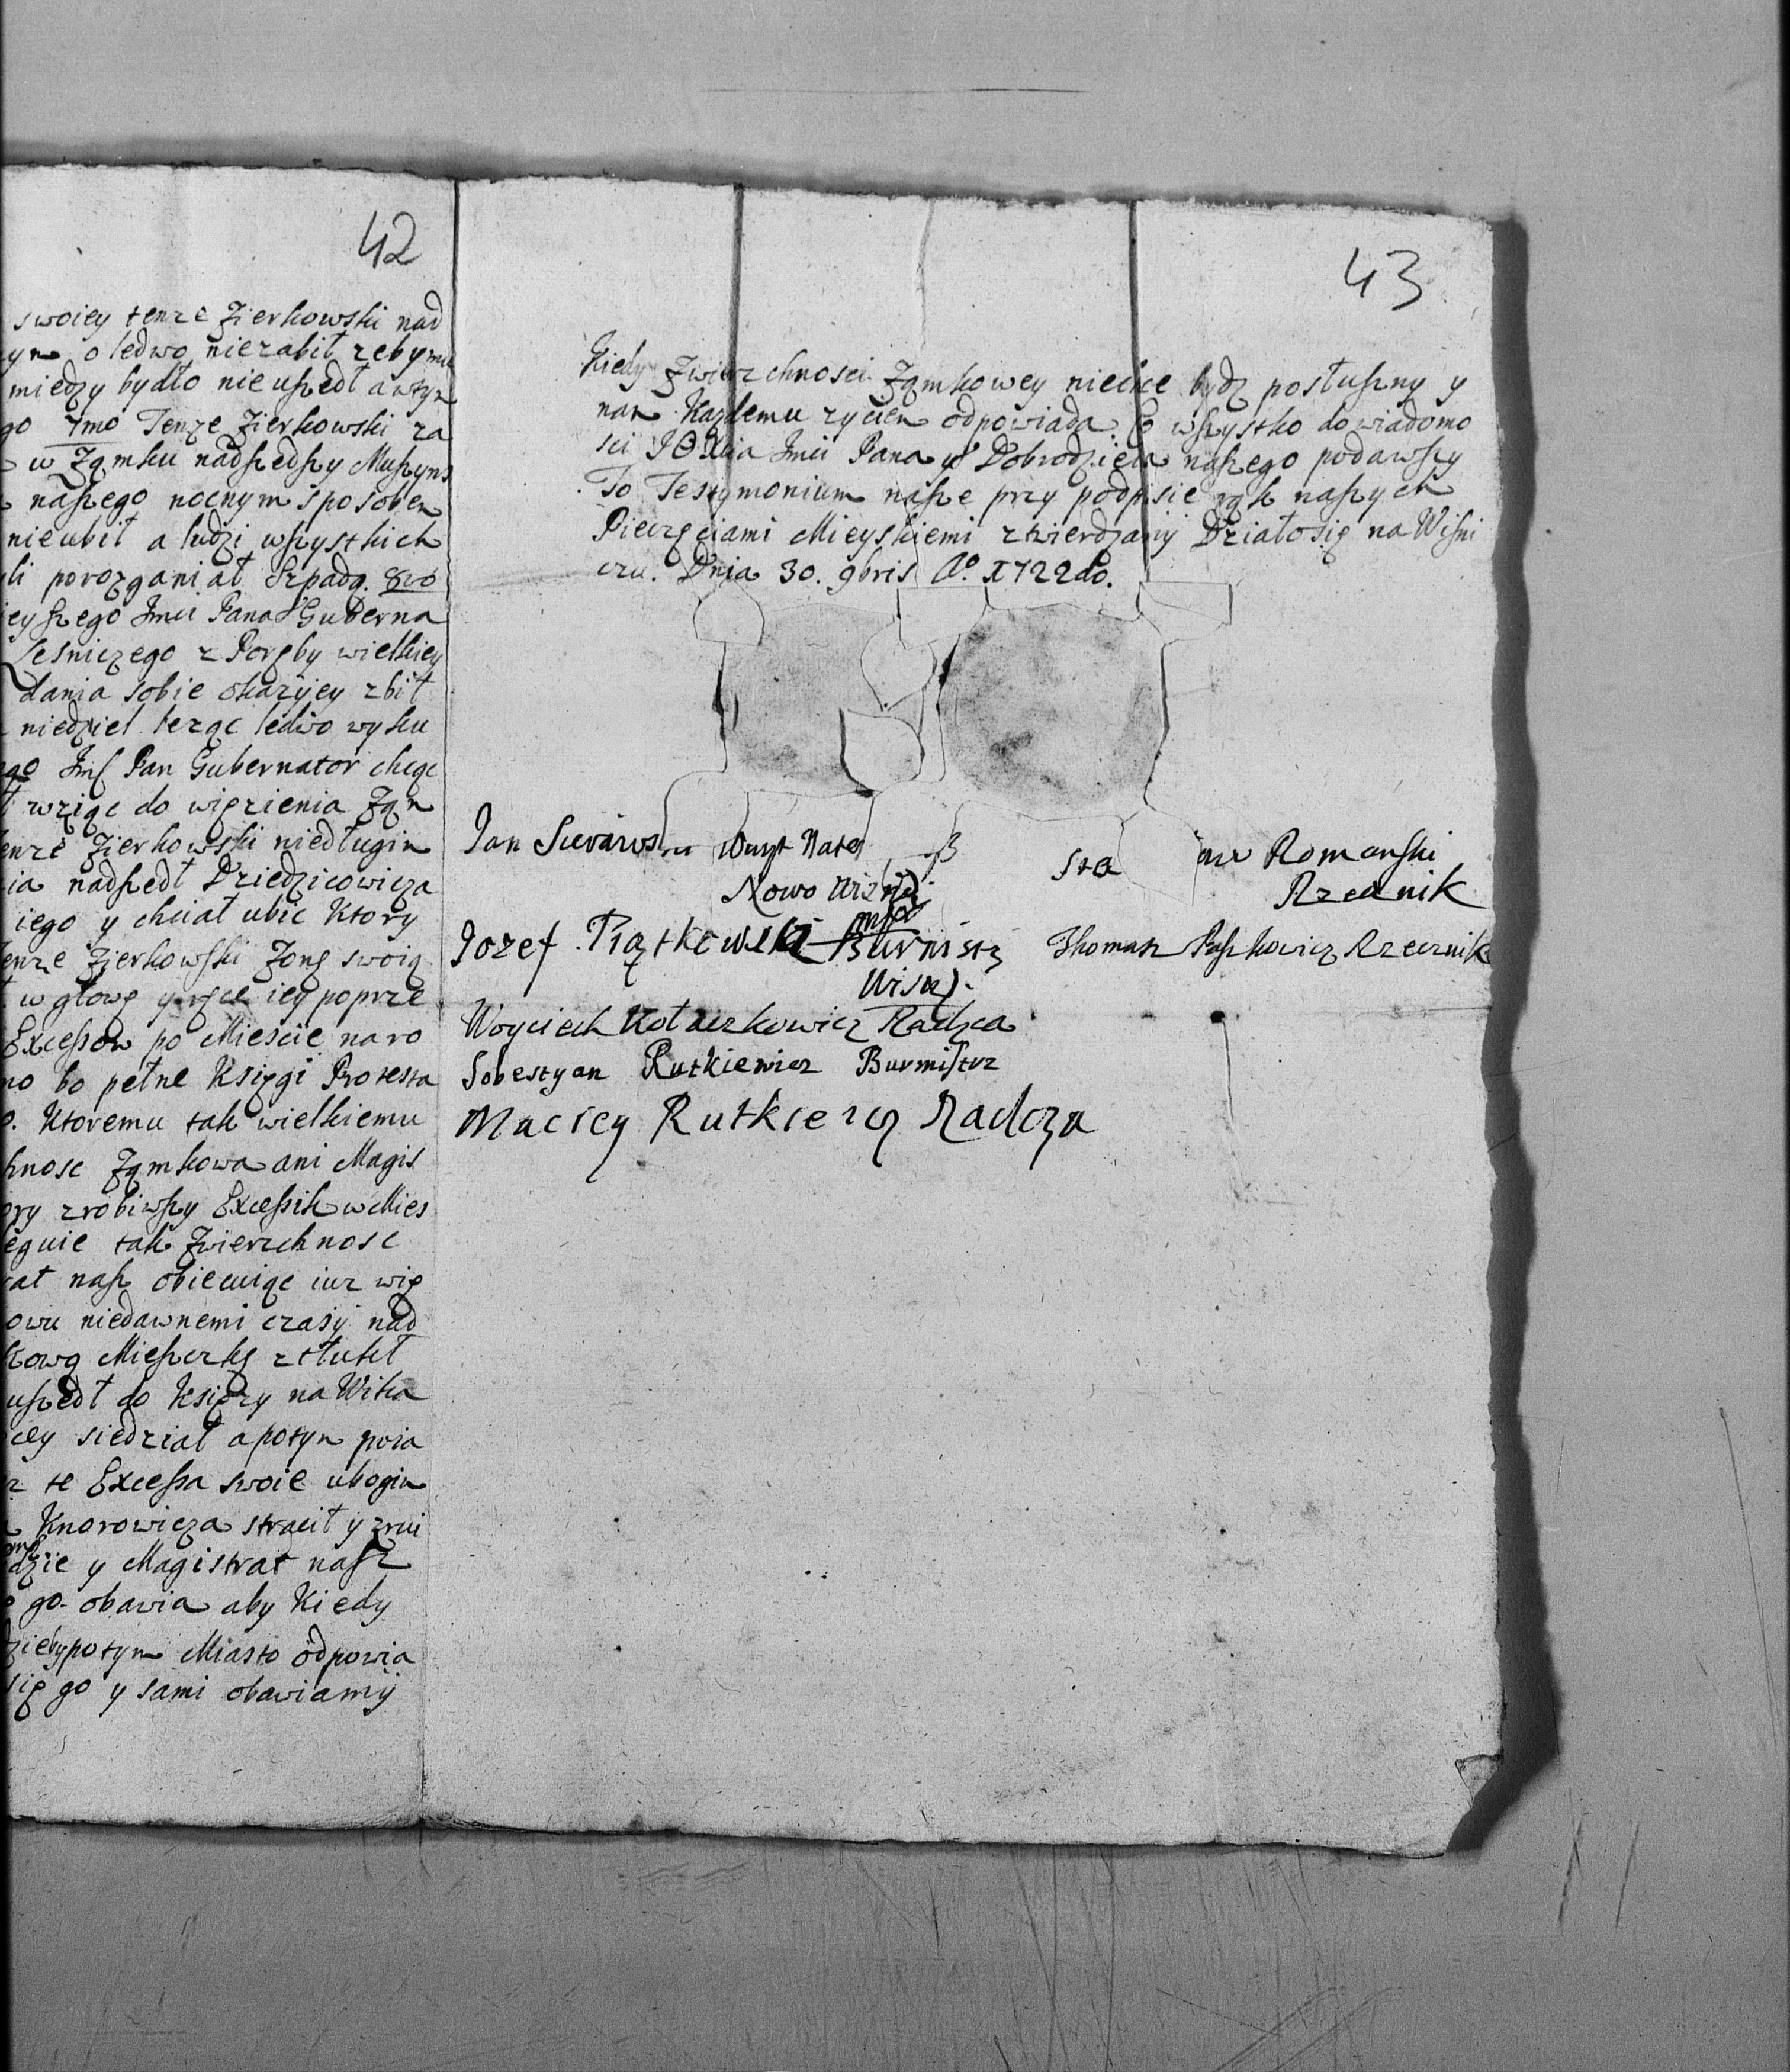 42
swoiey tenze Zierkowski nad
o ledwo niezabił zebymu
miedzy bydło nie uszedł awtym
go 7mo Tenze Zierkowski za
w Zamku nadszedszy Muszyns
naszego nocnym sposobem
nieubił a ludzi wszystkich
li porozganiał Szpadą. 8vo
eyszego Jmci Pana Guberna
Lesniczego z Poręby wielkiey
dania sobie okazyey zbił
niedziel leząc ledwo wysku
go Jmś Pan Gubernator chcąc
wziąc do więzienia Zam
enze Zierkowski niedługim
ia nadszedł Dziedzicowicza
iego y chciał ubic Ktory
enze Zierkowski Zonę swoią
w głowę y ręce iey poprze
Excessow po Miescie naro
no bo pełne Księgi Protesta
o. Ktoremu tak wielkiemu
hnosc Zamkowa ani Magis
ory zrobiwszy Excessik w Mies
eguie tak Zwierzchnosc
rat nasz obiecuiąc iuz wię
owu niedawnemi czasy nad
kową Mieszczkę ztłukł
uszedł do Księzy na Wisla
cey siedział apotym poia
z te Excessa swoie ubogim
Knorowicza stracił y zrui
dzie y Magistrat nasz
go obawia aby Kiedy
dziebypotym Miasto odpowia
się go y sami obawiamy
43
Kiedy Zwierzchnosci Zamkowey niechce bydz posłuszny y
nam Kazdemu zyciem odpowiada. Co wszystko dowiadomo
sci JO Xcia Jmci Pana y Dobrodzieia naszego podawszy
To Testymonium nasze przy podpisie rąk naszych
Pieczęciami Mieyskiemi ztwierdzamy Działosię na Wiśni
czu. Dnia 30. 9bris Ao. 1722do.
Jan
Nowo Wisn:
Jozef Piątkowski Burmistz
Wisn).
Woyciech Kołaczkowicz Radzca
Sobestyan Rutkiewicz Burmistrz
Maciey Rutkiewicz Radcza
Sta aw Romanski
Rzecznik
Thomasz Paszkowicz Rzecznik